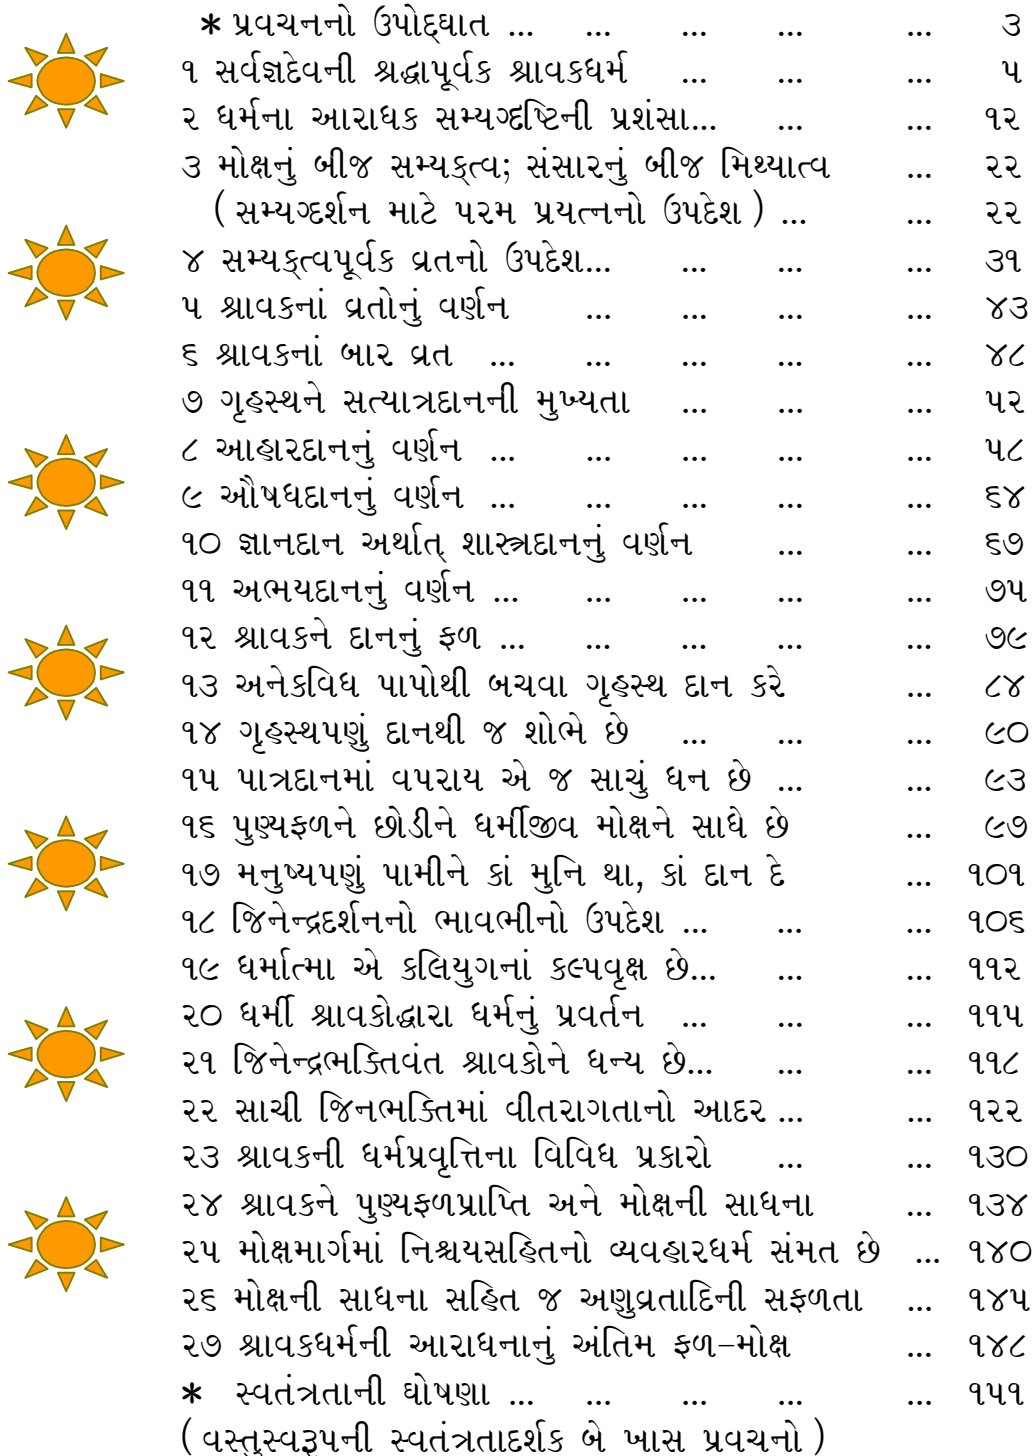 * પ્રવચનનો ઉપોદ્‌ઘાત ... ... ... ... ... ૩
૧ સર્વજ્ઞદેવની શ્રદ્ધાપૂર્વક શ્રાવકધર્મ ... ... ... ૫
૨ ધર્મના આરાધક સમ્યગ્દ્રષ્ટિની પ્રશંસા... ... ... ૧૨
૩ મોક્ષનું બીજ સમ્યક્ત્વ; સંસારનું બીજ મિથ્યાત્વ ... ૨૨
( સમ્યગ્દર્શન માટે પરમ પ્રયત્નનો ઉપદેશ ) ... ... ૨૨
૪ સમ્યક્ત્વપૂર્વક વ્રતનો ઉપદેશ... ... ... ... ૩૧
૫ શ્રાવકનાં વ્રતોનું વર્ણન ... ... ... ... ૪૩
૬ શ્રાવકનાં બાર વ્રત ... ... ... ... ... ૪૮
૭ ગૃહસ્થને સત્યાત્રદાનની મુખ્યતા ... ... ... ૫૨
૮ આહારદાનનું વર્ણન ... ... ... ... ... ૫૮
૯ ઔષધદાનનું વર્ણન ... ... ... ... ... ૬૪
૧૦ જ્ઞાનદાન અર્થાત્ શાસ્ત્રદાનનું વર્ણન ... ... ૬૭
૧૧ અભયદાનનું વર્ણન ... ... ... ... ... ૭૫
૧૨ શ્રાવકને દાનનું ફળ ... ... ... ... ... ૭૯
૧૩ અનેકવિધ પાપોથી બચવા ગૃહસ્થ દાન કરે ... ૮૪
૧૪ ગૃહસ્થપણું દાનથી જ શોભે છે ... ... ... ૯૦
૧૫ પાત્રદાનમાં વપરાય એ જ સાચું ધન છે ... ... ૯૩
૧૬ પુણ્યફળને છોડીને ધર્મીજીવ મોક્ષને સાધે છે ... ૯૭
૧૭ મનુષ્યપણું પામીને કાં મુનિ થા, કાં દાન દે ... ૧૦૧
૧૮ જિનેન્દ્રદર્શનનો ભાવભીનો ઉપદેશ ... ... ... ૧૦૬
૧૯ ધર્માત્મા એ કલિયુગનાં કલ્પવૃક્ષ છે... ... ... ૧૧૨
૨૦ ધર્મી શ્રાવકોદ્ધારા ધર્મનું પ્રવર્તન ... ... ... ૧૧૫
૨૧ જિનેન્દ્રભક્તિવંત શ્રાવકોને ધન્ય છે... ... ... ૧૧૮
૨૨ સાચી જિનભક્તિમાં વીતરાગતાનો આદર ... ... ૧૨૨
૨૩ શ્રાવકની ધર્મપ્રવૃત્તિના વિવિધ પ્રકારો ... ... ૧૩૦
૨૪ શ્રાવકને પુણ્યફળપ્રાપ્તિ અને મોક્ષની સાધના ... ૧૩૪
૨૫ મોક્ષમાર્ગમાં નિશ્ચયસહિતનો વ્યવહારધર્મ સંમત છે ... ૧૪૦
૨૬ મોક્ષની સાધના સહિત જ અણુવ્રતાદિની સફળતા ... ૧૪૫
૨૭ શ્રાવકધર્મની આરાધનાનું અંતિમ ફળ–મોક્ષ ... ૧૪૮
* સ્વતંત્રતાની ઘોષણા ... ... ... ... ... ૧૫૧
( વસ્તુસ્વરૂપની સ્વતંત્રતાદર્શક બે ખાસ પ્રવચનો )